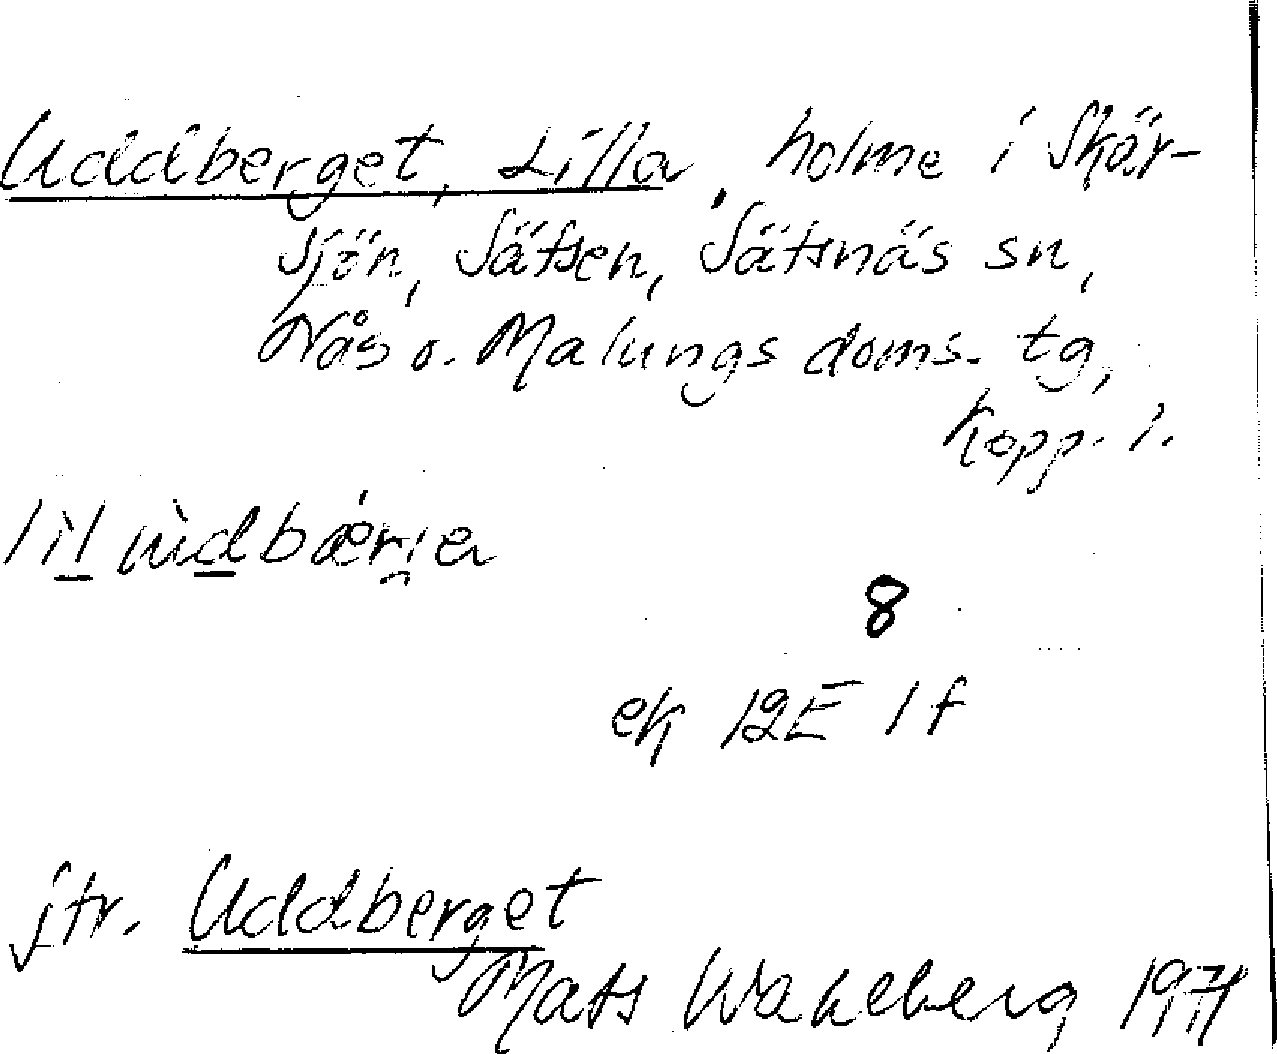 Uddberget, Lilla, holme i Skär-
sjön, Säfsen, Säfsnäs sn,
Nås o. Malungs doms. tg,
Kopp. l.
lil ùdbærja
8
ek 12E 1f
jfr. Uddberget
Mats Wahlberg 1971